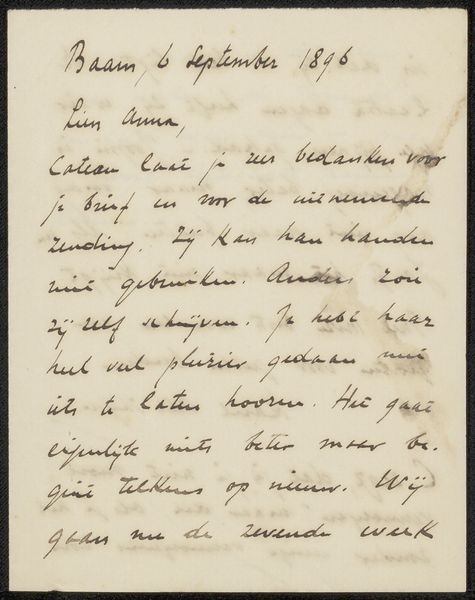 Baarn, 6 September 1896
Lien Anna,
Cateau laat je zeer bedanken voor
je brief en voor de uitnemende
zending. Zij kan haar handen
niet gebruiken. Anders zou
zij zelf schrijven. Je hebt haar
heel veel pleizier gedaan met
iets te laten hooren. Het gaat
eigenlijk niets beter maar be-
gint telkens op nieuw. Wij
gaan nu de zevende week